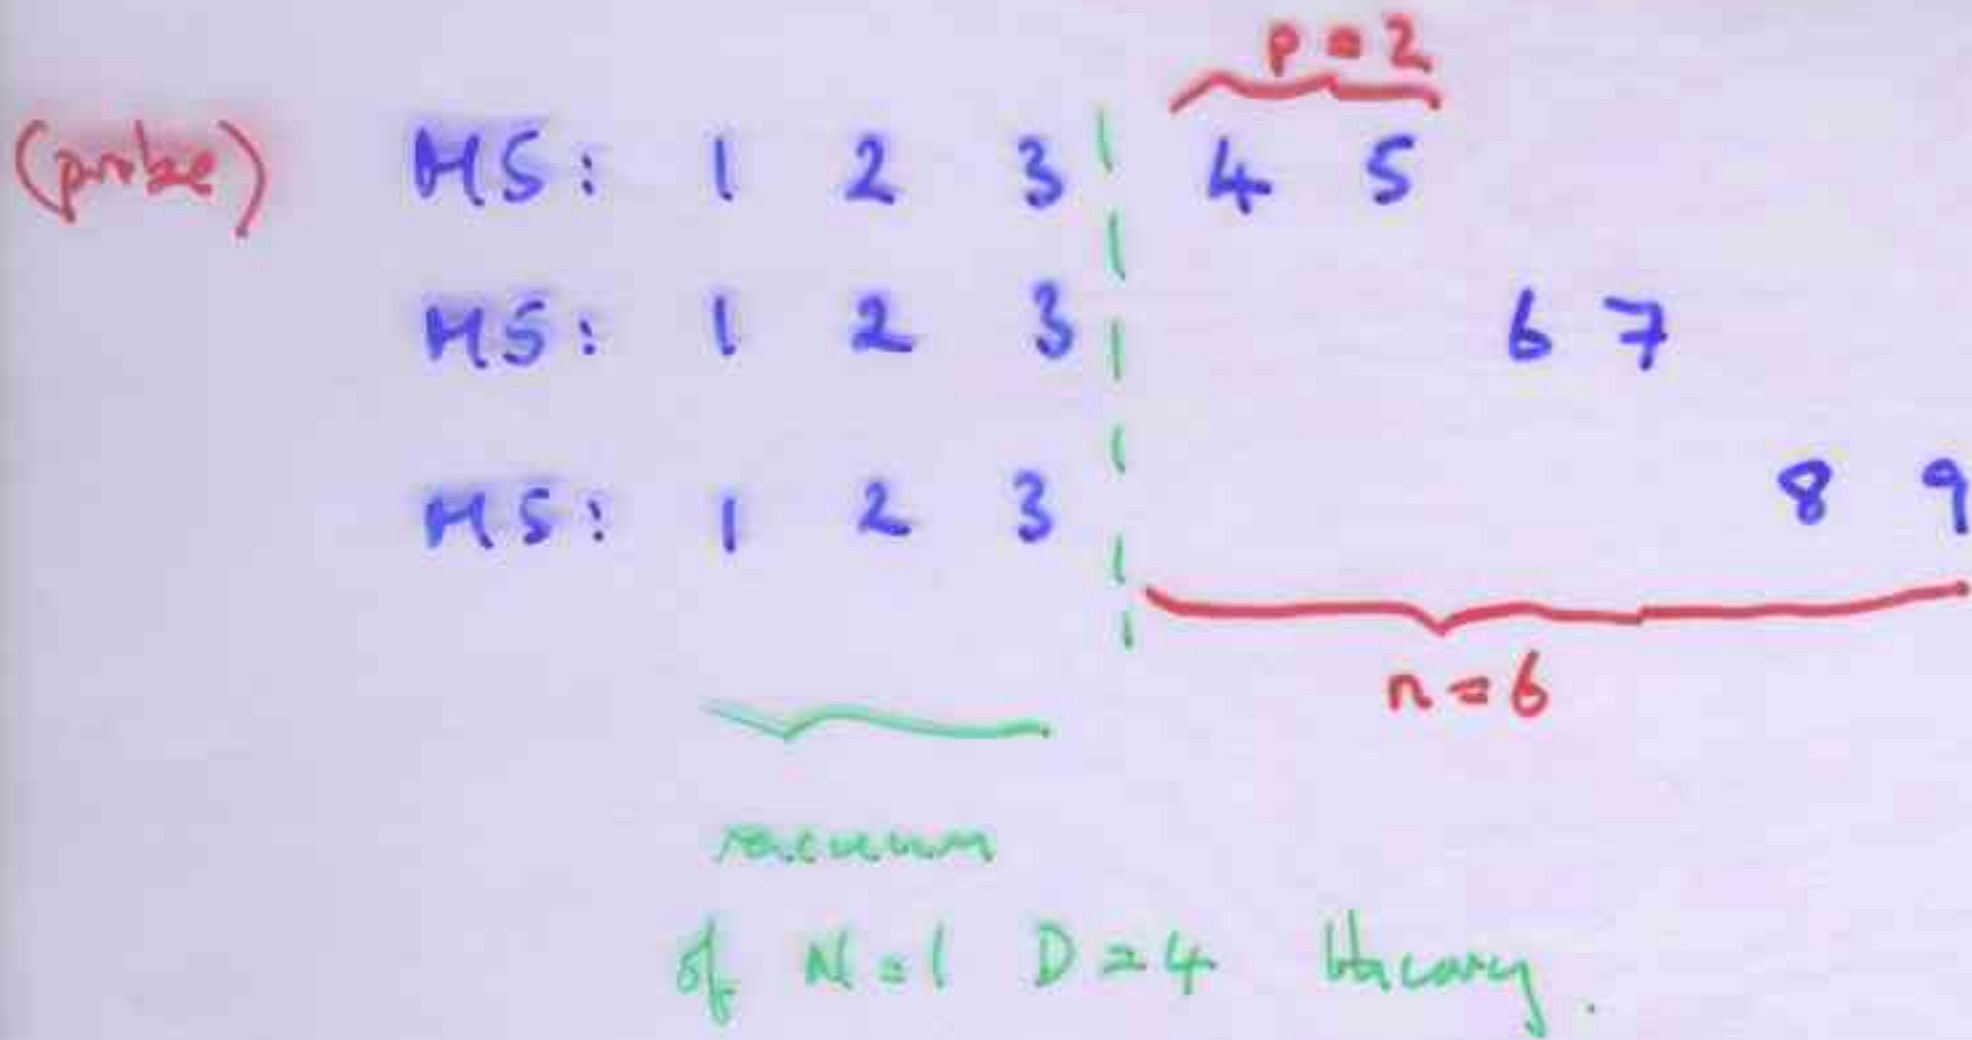 p = 2
(probe) M5: 1 2 3 4 5
M5: 1 2 3 6 7
M5: 1 2 3 8 9
n = 6
vacuum
of N=1 D=4 theory.